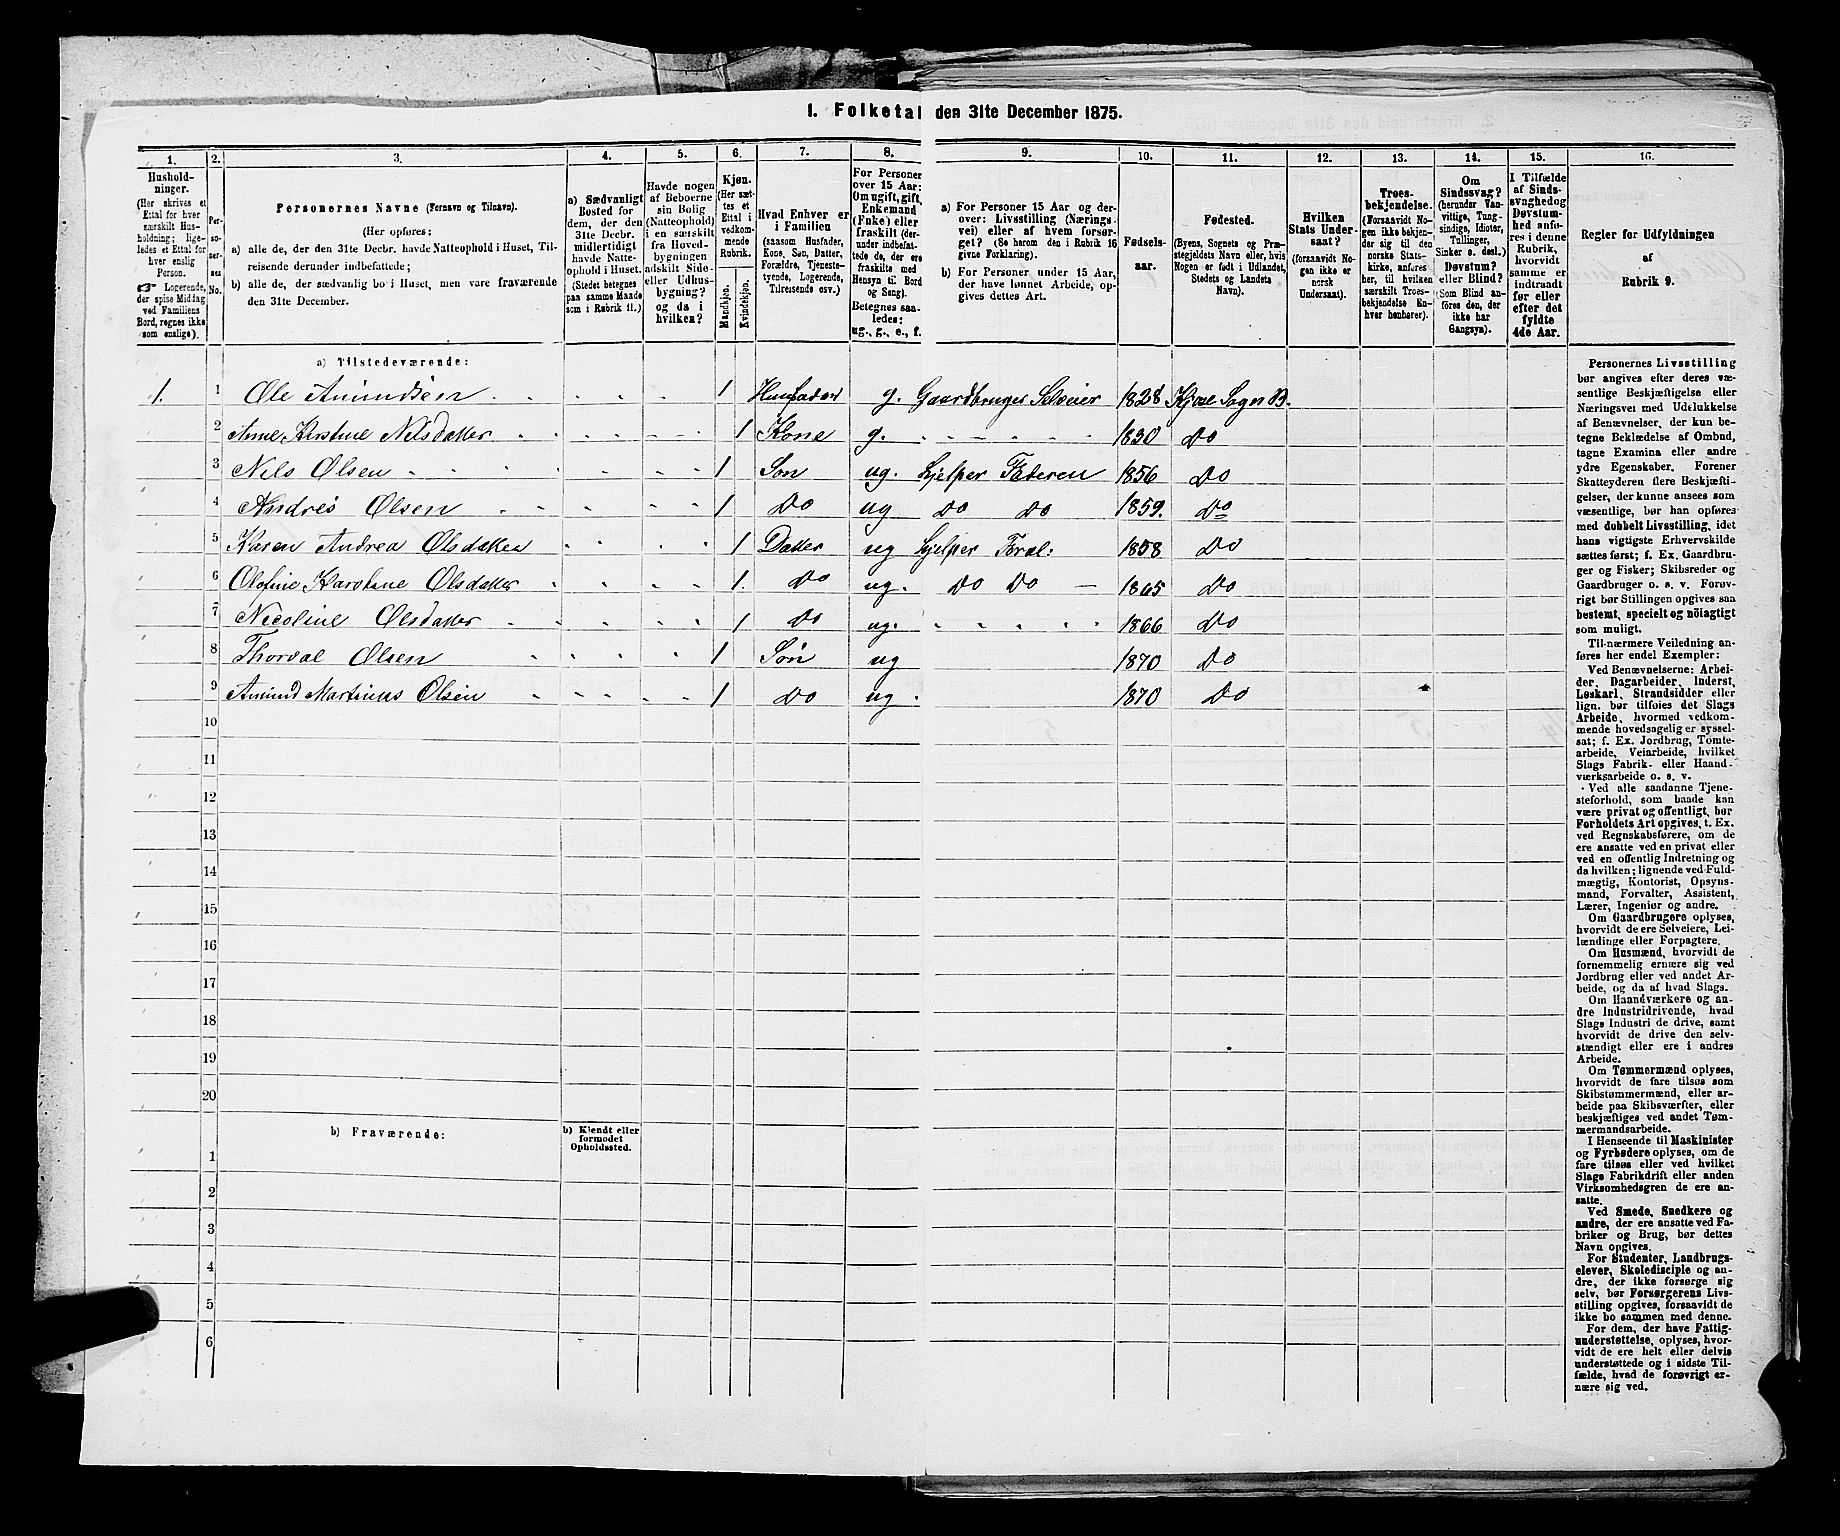 I. Folketal den 31te December 1875.
1. 2. 3. 4. 5. 6. 7. 8. 9. 10. 11. 12. 13. 14. 15. 16.
Husholdninger.
(Her skrives et
Ettal for hver
særskilt Husholdning; ligeledes et Ettal for
hver enslig
Person.
☞ Logerende,
der spise Middag
ved Familiens
Bord, regnes ikke
som enslige).
Personernes No.
Personernes Navne (Fornavn og Tilnavn).
(Her opføres:
a) alle de, der den 31te Decbr. havde Natteophold i Huset, Tilreisende derunder indbefattede;
b) alle de, der sædvanlig bo i Huset, men vare fraværende
den 31te December.
a) Sædvanligt
Bosted for
dem, der den
31te Decbr.
midlertidigt
havde Natteophold i Huset.
(Stedet betegnes
paa samme Maade
som i Rubrik 11.)
Havde nogen
af Beboerne
sin Bolig
(Natteophold)
i en særskilt
fra Hovedbygningen
adskilt Side-
eller Udhusbygning?
og da
hvilken?
Kjøn.
(Her sættes et
Ettal i
vedkommende
Rubrik.
Mandkjøn.
Kvindekjøn.
Hvad Enhver er
i Familien
(saasom Husfader,
Kone, Søn, Datter,
Forældre, Tjenestetyende, Logerende,
Tilreisende osv.)
For Personer
over 15 Aar:
Om ugift, gift,
Enkemand
(Enke) eller
fraskilt (derunder indbefattede de, ere
fraskilte med
Hensyn til Bord
og Seng).
Betegnes saaledes:
ug., g., e., f.
a) For Personer 15 Aar og derover: Livsstilling (Næringsvei) eller af hvem forsørget? (Se herom den i Rubrik 16
givne Forklaring).
b) For Personer under 15 Aar,
der have lønnet Arbeide, opgives dettes Art.
Fødselsaar.
Fødested.
(Byens, Sognets og Præstegjeldets Navn eller, hvis
Nogen er født i Udlandet,
Stedets og Landets
Navn).
Hvilken
Stats Undersaat?
(forsaavidt Nogen ikke er
norsk
Undersaat).
Troesbekjendelse.
(Forsaavidt Nogen ikke bekjender sig til den
norske Statskirke, anføres
her, til hvilken
særskilt Troesbekjendelse Enhver henhører).
Om
Sindssvag?
(herunder Vanvittige, Tungsindige, Idioter,
Tullinger,
Sinker o. desl.)
Døvstum?
eller Blind?
(Som Blind anføres den, der
ikke har
Gangsyn).
I Tilfælde
af Sindssvaghed og
Døvstumhed anføres i denne
Rubrik,
hvorvidt
samme er
indtraadt
før eller
efter det
fyldte
4de Aar.
Regler før Udfyldningen
af
Rubrik 9.
a) Tilstedeværende:
1. 1 Ole Amundsen 1 Husfader g. Gaardbruger Selveier 1828 Sogn B.
2 Anne Kirstine Nilsdatter 1 Kone g. 1830 Do
3 Nils Olsen 1 Søn ug. hjelper Faderen 1856 Do
4 Andrés Olsen 1 Do ug Do Do 1859. Do
5 Karen Andrea Olsdatter 1 Datter ug hjelper Foræl: 1858 Do
6 Olofine Karoline Olsdatter 1. Do ug. Do Do — 1865 Do
7 Nicoline Olsdatter 1 Do ug. 1866 Do
8 Thorval Olsen 1 Søn ug 1870 Do
9 Amund Martinus Olsen 1 Do ug. 1870 Do
10
11
12
13
14
15
16
17
18
19
20
b) Fraværende:
b) Kjendt eller
formodet
Opholdssted.
1
2
3
4
5
6
Personernes Livsstilling
bør angives efter deres væsentlige Beskjæftigelse eller
Næringsvei med Udelukkelse
af Benævnelser, der kun betegne Beklædelse af Ombud,
tagne Examina eller andre
ydre Egenskaber. Forener
Skatteyderen flere Beskjæftigelser, der kunne ansees som
væsentlige, bør han opføres
med dobbelt Livsstilling, idet
hans vigtigste Erhvervskilde
sættes først; f. Ex. Gaardbruger og Fisker; Skibsreder og
Gaardbruger o. s. v. Forøvrigt bør Stillingen opgives saa
bestemt, specielt og nöiagtigt
som muligt.
Til nærmere Veiledning anføres her endel Exempler:
Ved Benævnelserne: Arbeider, Dagarbeider, Inderst,
Løskarl, Strandsidder eller
lign. bør tilføies det Slags
Arbeide, hvormed vedkommende hovedsagelig er sysselsat; f. Ex. Jordbrug, Tomtearbeide, Veiarbeide, hvilket
Slags Fabrik- eller Haandværksarbeide o. s. v.
Ved alle saadanne Tjenesteforhold, som baade kan
være privat og offentligt, bør
Forholdets Art opgives, t. Ex.
ved Regnskabsførere, om de
ere ansatte ved en privat eller
ved en offentlig Indretning og
da hvilken; lignende ved Fuldmægtig, Kontorist, Opsynsmand, Forvalter, Assistent,
Lærer, Ingeniør og andre.
Om Gaardbrugere oplyses,
hvorvidt de ere Selveiere, Leilændinge eller Forpagtere.
Om Husmænd, hvorvidt de
fornemmelig ernære sig ved
Jordbrug eller ved andet Arbeide, og da af hvad Slags.
Om Haandværkere og andre Industridrivende, hvad
Slags Industri de drive, samt
hvorvidt de drive den selvstændigt eller ere i andres
Arbeide.
Om Tømmermænd oplyses,
hvorvidt de fare tilsøs som
Skibstømmermænd, eller arbeide paa Skibsværfter, eller
beskjæftiges ved andet Tømmermandsarbeide.
I Henseende til Maskinister
og Fyrbødere oplyses, om de
fare tilsøs eller ved hvilket
Slags Fabrikdrift eller anden
Virksomhedsgren de ere ansatte.
Ved Smede, Snedkere og
andre, der ere ansatte ved Fabriker og Brug, bør dettes
Navn opgives.
For Studenter, Landbrugselever, Skoledisciple og andre, der ikke forsørge sig
selv, bør Forsørgerens Livsstilling opgives, forsaavidt de
ikke bo sammen med denne.
For dem, der have Fattigunderstøttelse, oplyses, hvorvidt de ere helt eller delvis
understøttede og i sidste Tilfælde, hvad de forøvrigt ernære sig ved.